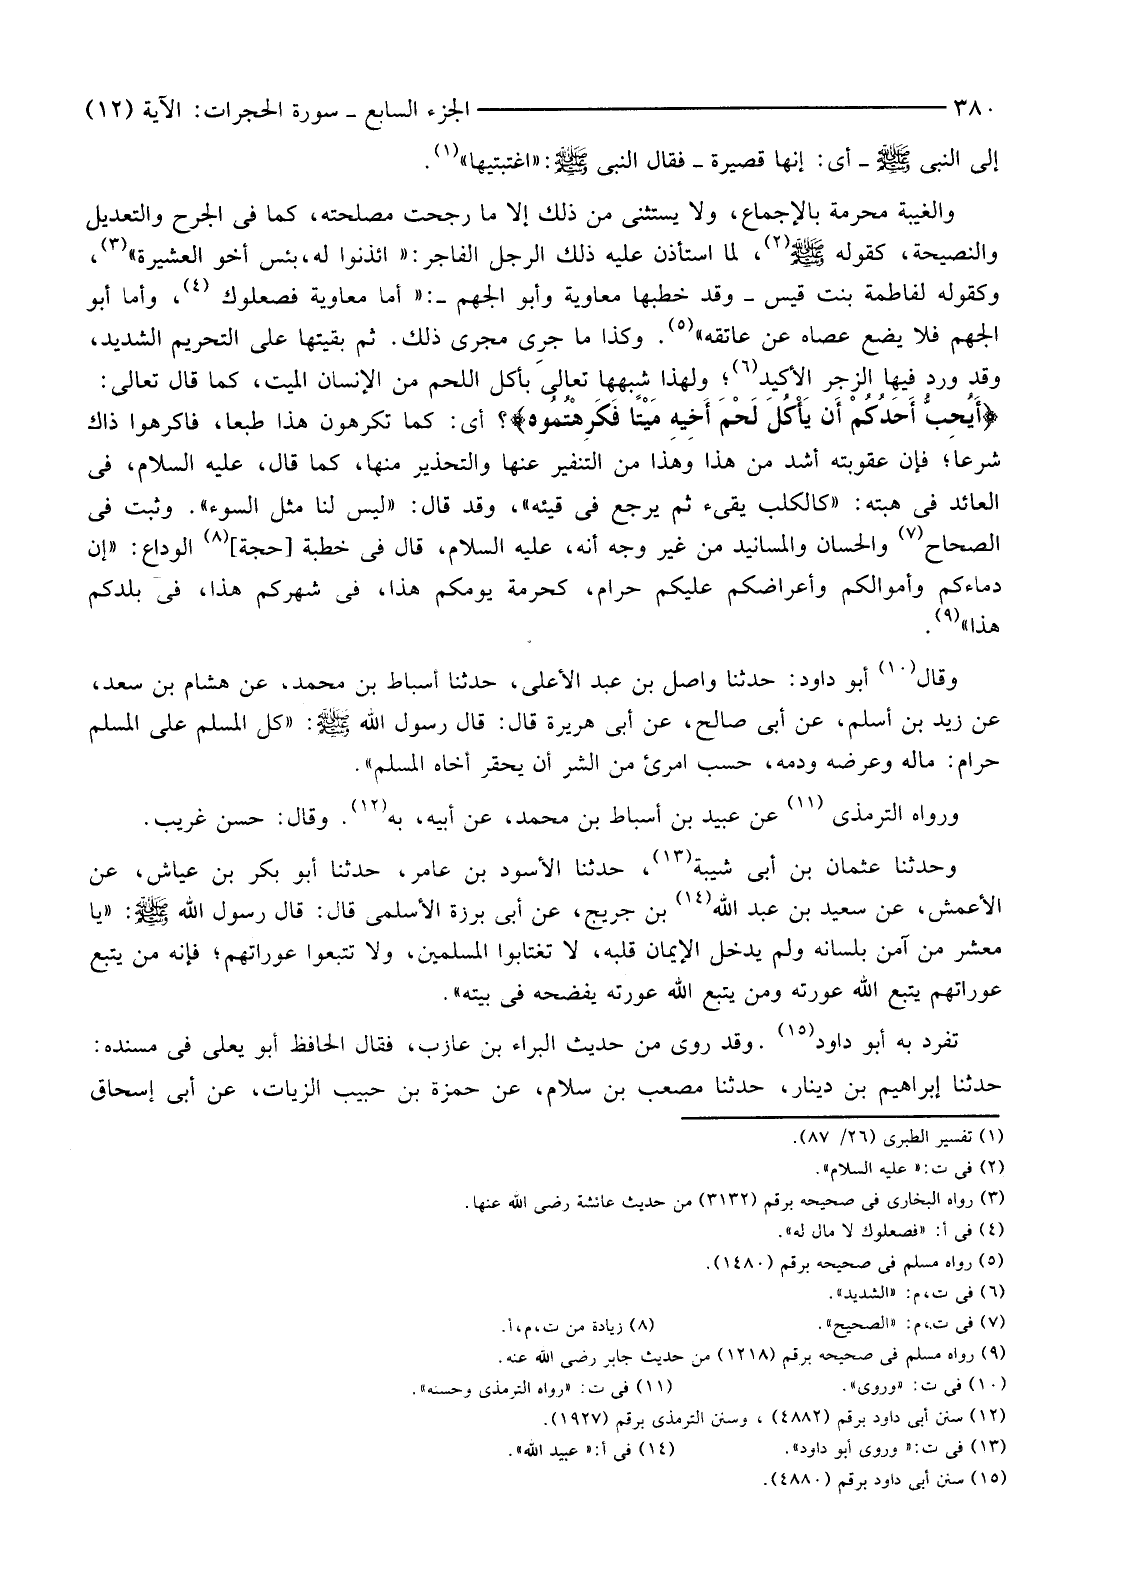 ٣٨٠ ــــــــــــــــــــ الجزء السابع ـ سورة الحجرات: الآية (١٢)
إلى النبى ﷺ ـ أى: إنها قصيرة ـ فقال النبى ﷺ:«اغتبتيها»(١).
والغيبة محرمة بالإجماع، ولا يستثنى من ذلك إلا ما رجحت مصلحته، كما فى الجرح والتعديل
والنصيحة، كقوله ﷺ(٢)، لما استأذن عليه ذلك الرجل الفاجر:« ائذنوا له،بئس أخو العشيرة»(٣)،
وكقوله لفاطمة بنت قيس ـ وقد خطبها معاوية وأبو الجهم ـ:« أما معاوية فصعلوك (٤)، وأما أبو
الجهم فلا يضع عصاه عن عاتقه»(٥). وكذا ما جرى مجرى ذلك. ثم بقيتها على التحريم الشديد،
وقد ورد فيها الزجر الأكيد(٦)؛ ولهذا شبهها تعالى بأكل اللحم من الإنسان الميت، كما قال تعالى:
﴿أَيُحِبُّ أَحَدُكُمْ أَن يَأْكُلَ لَحْمَ أَخِيهِ مَيْتًا فَكَرِهْتُمُوه﴾؟ أى: كما تكرهون هذا طبعا، فاكرهوا ذاك
شرعا؛ فإن عقوبته أشد من هذا وهذا من التنفير عنها والتحذير منها، كما قال، عليه السلام، فى
العائد فى هبته: «كالكلب يقىء ثم يرجع فى قيئه»، وقد قال: «ليس لنا مثل السوء». وثبت فى
الصحاح(٧) والحسان والمسانيد من غير وجه أنه، عليه السلام، قال فى خطبة [حجة](٨) الوداع: «إن
دماءكم وأموالكم وأعراضكم عليكم حرام، كحرمة يومكم هذا، فى شهركم هذا، فى بلدكم
هذا»(٩).
وقال(١٠) أبو داود: حدثنا واصل بن عبد الأعلى، حدثنا أسباط بن محمد، عن هشام بن سعد،
عن زيد بن أسلم، عن أبى صالح، عن أبى هريرة قال: قال رسول الله ﷺ: «كل المسلم على المسلم
حرام: ماله وعرضه ودمه، حسب امرئ من الشر أن يحقر أخاه المسلم».
ورواه الترمذى (١١) عن عبيد بن أسباط بن محمد، عن أبيه، به(١٢). وقال: حسن غريب.
وحدثنا عثمان بن أبى شيبة(١٣)، حدثنا الأسود بن عامر، حدثنا أبو بكر بن عياش، عن
الأعمش، عن سعيد بن عبد الله(١٤) بن جريج، عن أبى برزة الأسلمى قال: قال رسول الله ﷺ: «يا
معشر من آمن بلسانه ولم يدخل الإيمان قلبه، لا تغتابوا المسلمين، ولا تتبعوا عوراتهم؛ فإنه من يتبع
عوراتهم يتبع الله عورته ومن يتبع الله عورته يفضحه فى بيته».
تفرد به أبو داود(١٥) .وقد روى من حديث البراء بن عازب، فقال الحافظ أبو يعلى فى مسنده:
حدثنا إبراهيم بن دينار، حدثنا مصعب بن سلام، عن حمزة بن حبيب الزيات، عن أبى إسحاق
(١) تفسير الطبرى (٢٦/ ٨٧).
(٢) فى ت:« عليه السلام».
(٣) رواه البخارى فى صحيحه برقم (٣١٣٢) من حديث عائشة رضى الله عنها.
(٤) فى أ: «فصعلوك لا مال له».
(٥) رواه مسلم فى صحيحه برقم (١٤٨٠).
(٦) فى ت،م: «الشديد».
(٧) فى ت،م: «الصحيح». (٨) زيادة من ت،م،أ.
(٩) رواه مسلم فى صحيحه برقم (١٢١٨) من حديث جابر رضى الله عنه.
(١٠) فى ت: «وروى». (١١) فى ت: «رواه الترمذى وحسنه».
(١٢) سنن أبى داود برقم (٤٨٨٢) ، وسنن الترمذى برقم (١٩٢٧).
(١٣) فى ت:« وروى أبو داود». (١٤) فى أ:« عبيد الله».
(١٥) سنن أبى داود برقم (٤٨٨٠).